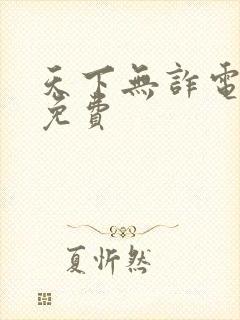 天下無詐電
免費
夏忻然